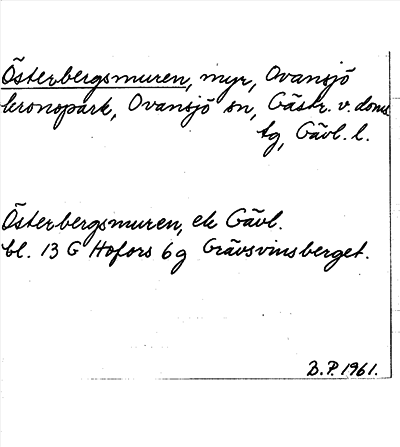 Österbergsmuren, myr, Ovansjö
kronopark, Ovansjö sn, Gästr. v. doms
tg, Gävl. l.
Österbergsmuren, ek Gävl.
bl. 13 G Hofors 6 g Grävsvinsberget.
B.P. 1961.